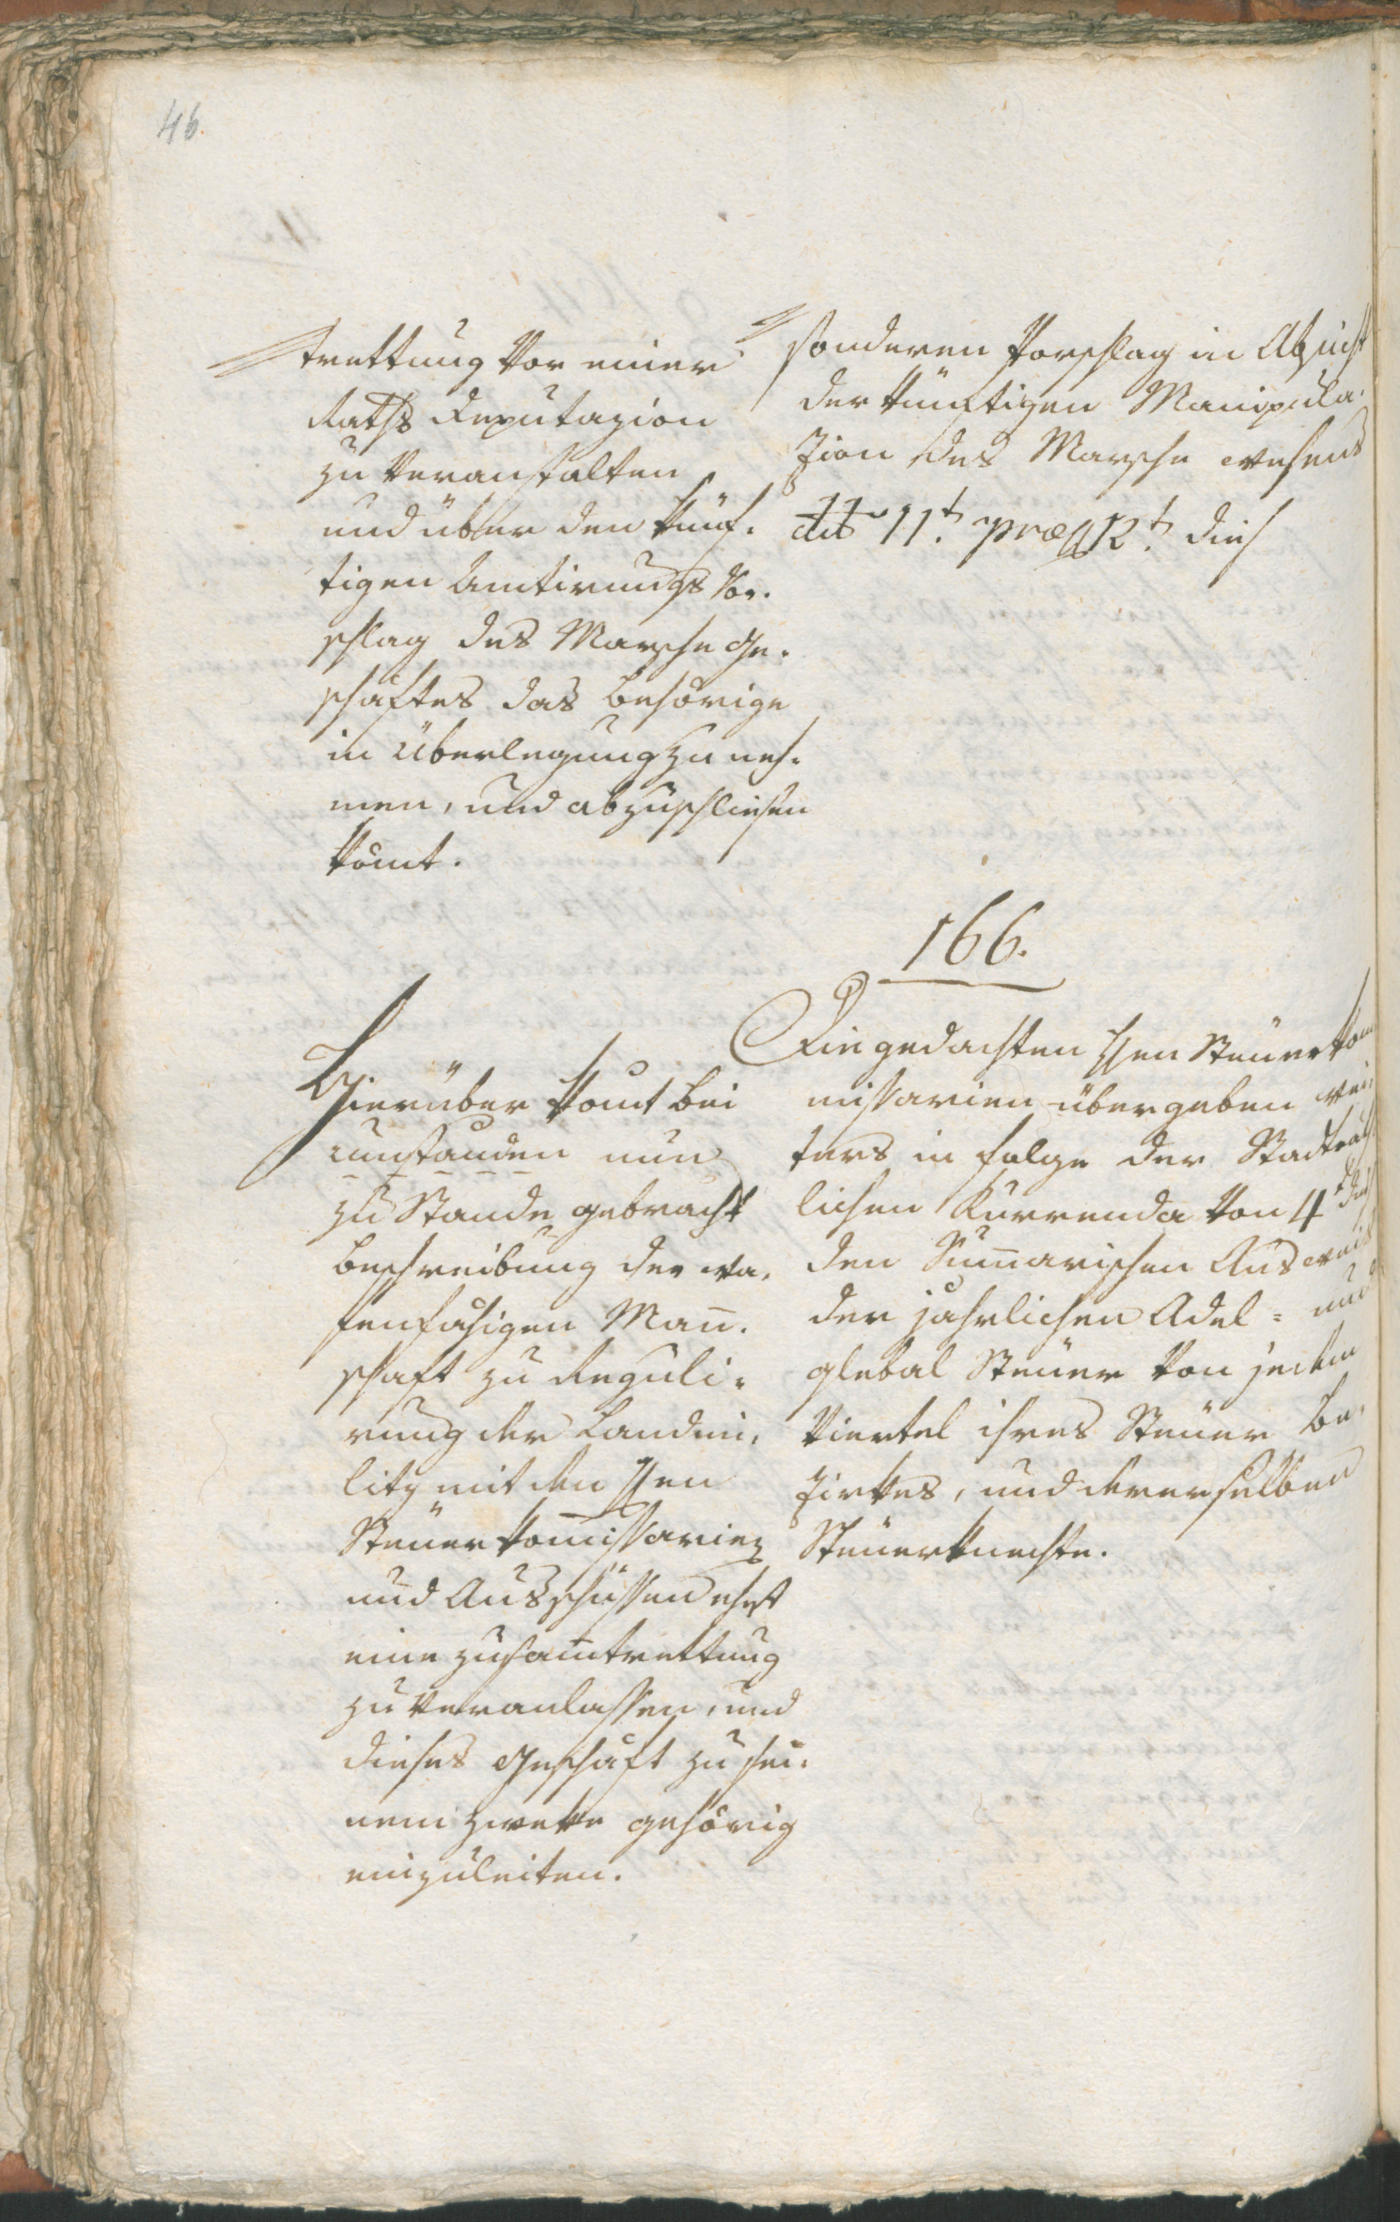 46.
trettung vor einer
Raths Deputazion
zu veranstalten
und über den künf-
tigen Amtirungs Vor-
schlag des Marsche Ge-
schäftes das behörige
in Überlegung zu neh-
men, und abzuschliesen
kömt.
sonderen Vorschlag in Absicht
der künftigen Manipula-
zion des Marsche wesens
dto 11t. præs 12t. dies
166.
Hierüber komt bei
zustanden nun
zu Stande gebracht
Beschreibung der wa-
fenfähigen Man̄-
schaft zu Reguli-
rung der Landmi-
litz mit den Hen
Steuer kom̄issarien
und Ausschüssen ehest
eine zusam̄trettung
zu veranlassen, und
dieses Geschäft zu sei-
nem zweke gehörig
einzuleiten.
Die gedachten Hen Steuer kom
missarien übergeben wei-
ters in folge der Stadträth-
lichen Kurrenda von 4t dies
den Sum̄arischen Ausweis
der jährlichen Adel- und
Glebal Steuer von jedem
Viertel ihres Steuer be-
zirkes, und derenselben
Steuerknechte.